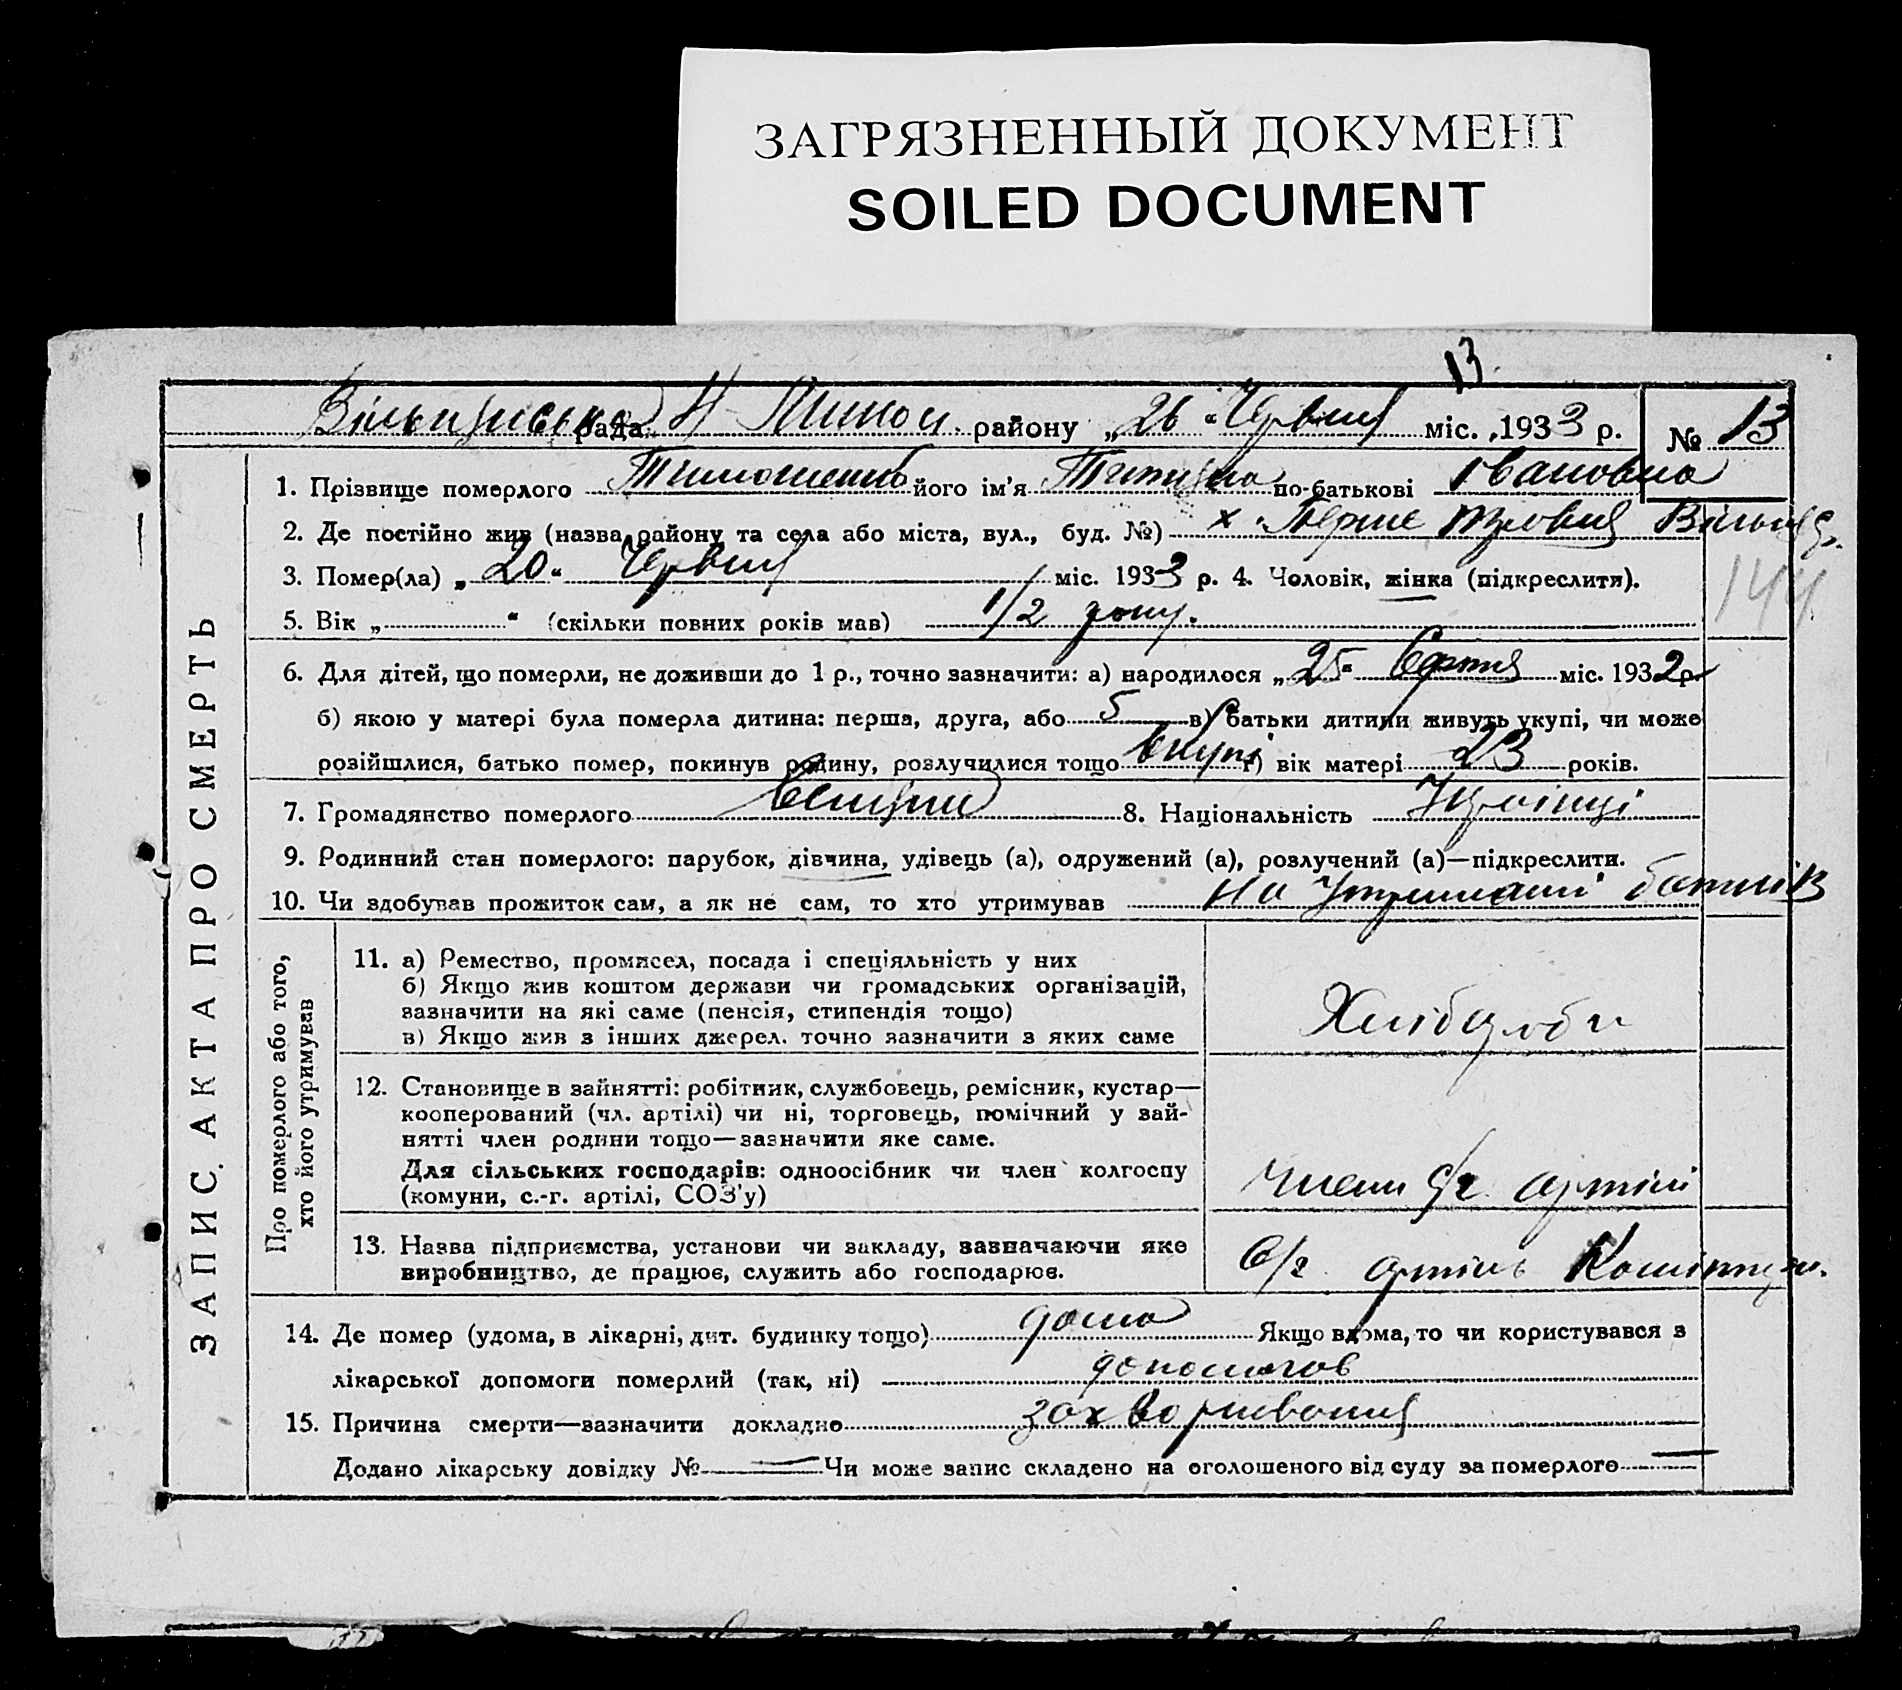 ЗАГРЯЗНЕННЫЙ ДОКУМЕНТ
SOILED DOCUMENT
13
рада району „26“ Червня міс. 1933 р. № 13
ЗАПИС АКТА ПРО СМЕРТЬ
1. Прізвище померлого Тимошенко його ім'я Тетяна по-батькові Івановна
2. Де постійно жив (назва району та села або міста, вул., буд. №) х. Перше Травня
3. Помер(ла) „20“ Червня міс. 1933 р. 4. Чоловік, жінка (підкреслити).
144
5. Вік „ “ (скільки повних років мав) 1/2 року.
6. Для дітей, що померли, не доживши до 1 р., точно зазначити: а) народилося „25“ Серпня міс. 1932 р.
б) якою у матері була померла дитина: перша, друга, або 5 в) батьки дитини живуть укупі, чи може
розійшлися, батько помер, покинув родину, розлучилися тощо вкупі г) вік матері 23 років.
7. Громадянство померлого 8. Національність Українці
9. Родинний стан померлого: парубок, дівчина, удівець (а), одружений (а), розлучений (а)—підкреслити.
10. Чи здобував прожиток сам, а як не сам, то хто утримував на утриманні батьків
Про померлого або того,
хто його утримував
11. а) Ремество, промисел, посада і спеціяльність у них
б) Якщо жив коштом держави чи громадських організацій,
зазначити на які саме (пенсія, стипендія тощо)
в) Якщо жив з інших джерел. точно зазначити з яких саме
Хлібороби
12. Становище в зайнятті: робітник, службовець, ремісник, кустар—
кооперований (чл. артілі) чи ні, торговець, помічний у зай-
нятті член родини тощо—зазначити яке саме.
Для сільських господарів: одноосібник чи член колгоспу
(комуни, с.-г. артілі, СОЗ'у)
член с/г. артілі
13. Назва підприємства, установи чи закладу, зазначаючи яке
виробництво, де працює, служить або господарює.
С/г. артіль
14. Де помер (удома, в лікарні, дит. будинку тощо) дома Якщо вдома, то чи користувався з
лікарської допомоги померлий (так, ні)
15. Причина смерти—зазначити докладно захворювання
Додано лікарську довідку № — Чи може запис складено на оголошеного від суду за померлого —